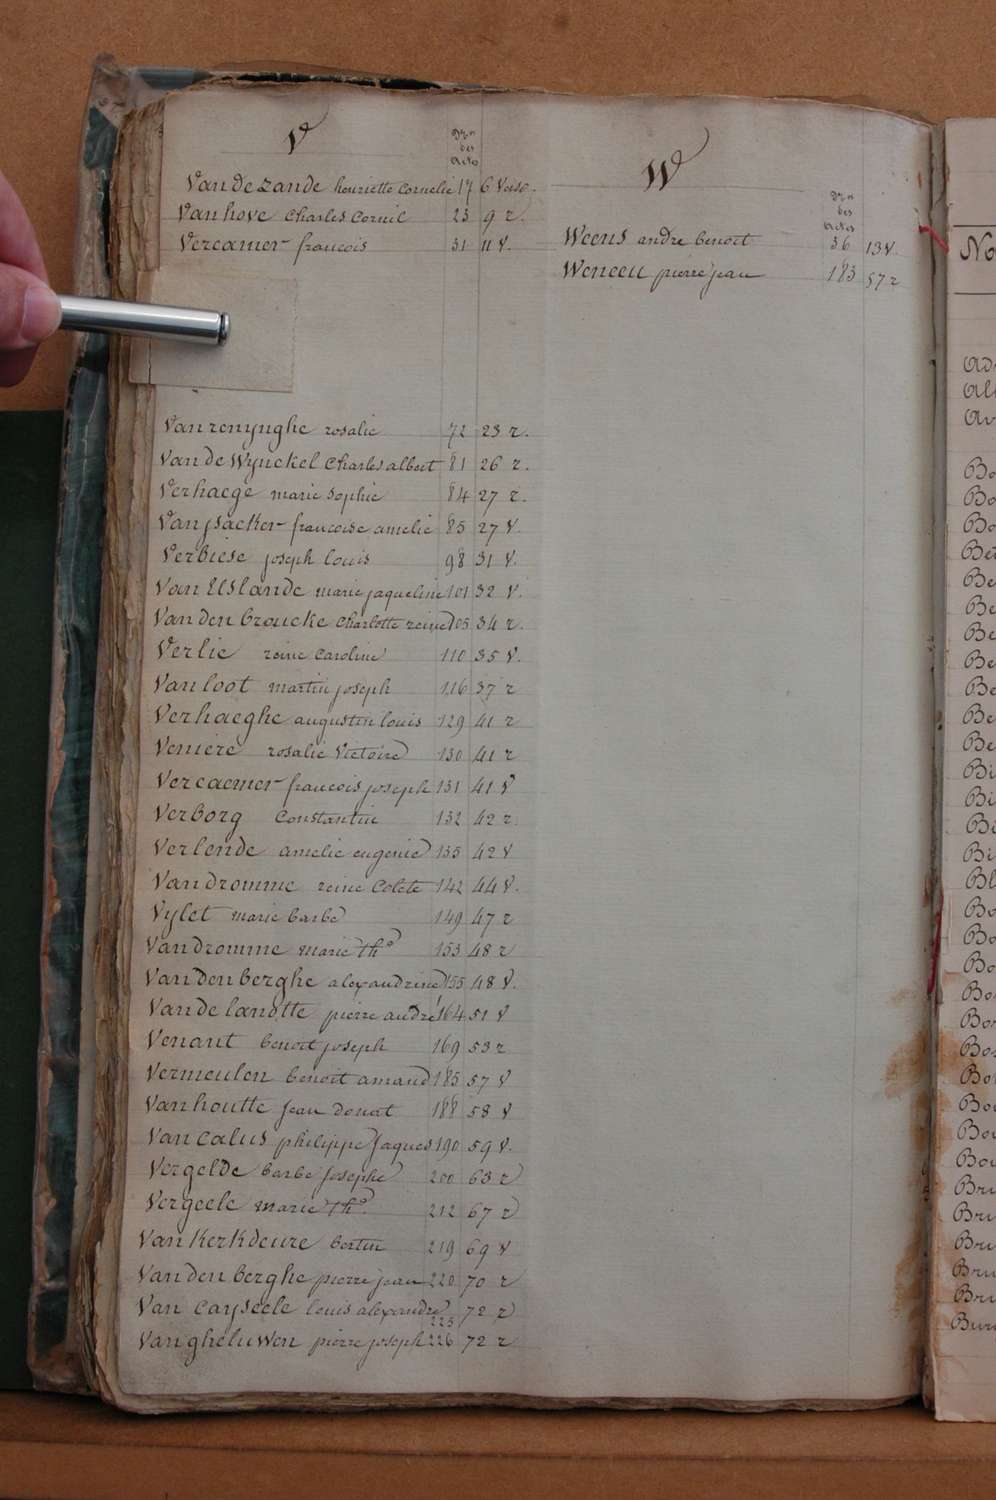 V
Nro des actes
Van de zande henriette Cornelie 17 6 Verso.
Vanhove Charles Cornil 23 9 r.
Vercamer francois 31 11 V.
Vanrenynghe rosalie 72 23 r.
Van de Wynckel Charles albert 81 26 r.
Verhaege marie Sophie 84 27 r.
Vanysacker francoise amelie 85 27 V.
Verbiese joseph louis 98 31 V.
Van Uslande marie jaqueline 101 32 V.
Van den broucke Charlotte reine 105 34 r.
Verlie reine Caroline 110 35 V.
Vanloot martin joseph 116 37 r
Verhaeghe augustin louis 129 41 r
Veniere rosalie Victoire 130 41 r
Vercaemer francois joseph 131 41 V
Verborg Constantin 132 42 r.
Verlende amelie eugenie 135 42 V
Vandromme reine Colete 142 44 V.
Vylet marie barbe 149 47 r
Vandromme marie the 153 48 r
Van den berghe alexandrine 155 48 V.
Van de lanotte pierre andré 164 51 V
Venant benoit joseph 169 53 r
Vermeulen benoit amand 185 57 V
Vanhoutte jean donat 188 58 V
Van Calus philippe Jaques 190 59 V.
Vergelde barbe josephe 200 63 r
Vergeele marie The. 212 67 r
Van Kerkdeure bertin 219 69 V
Van den berghe pierre jean 220 70 r
Van Cayseele louis alexandre 225 72 r
Van gheluwen pierre joseph 226 72 r
W
Nro des actes
Weens andre benoit 36 13 V.
Weneeu pierre jean 183 57 r
No
Ad
Al
Av
Bo
Bo
Bo
Be
Be
Be
Be
Be
Be
Be
Be
Bi
Bi
Bi
Bi
Bl
Bo
Bo
Bo
Bo
Bor
Bos
Bot
Bou
Bou
Bou
Bri
Bru
Bru
Bru
Bru
Bur